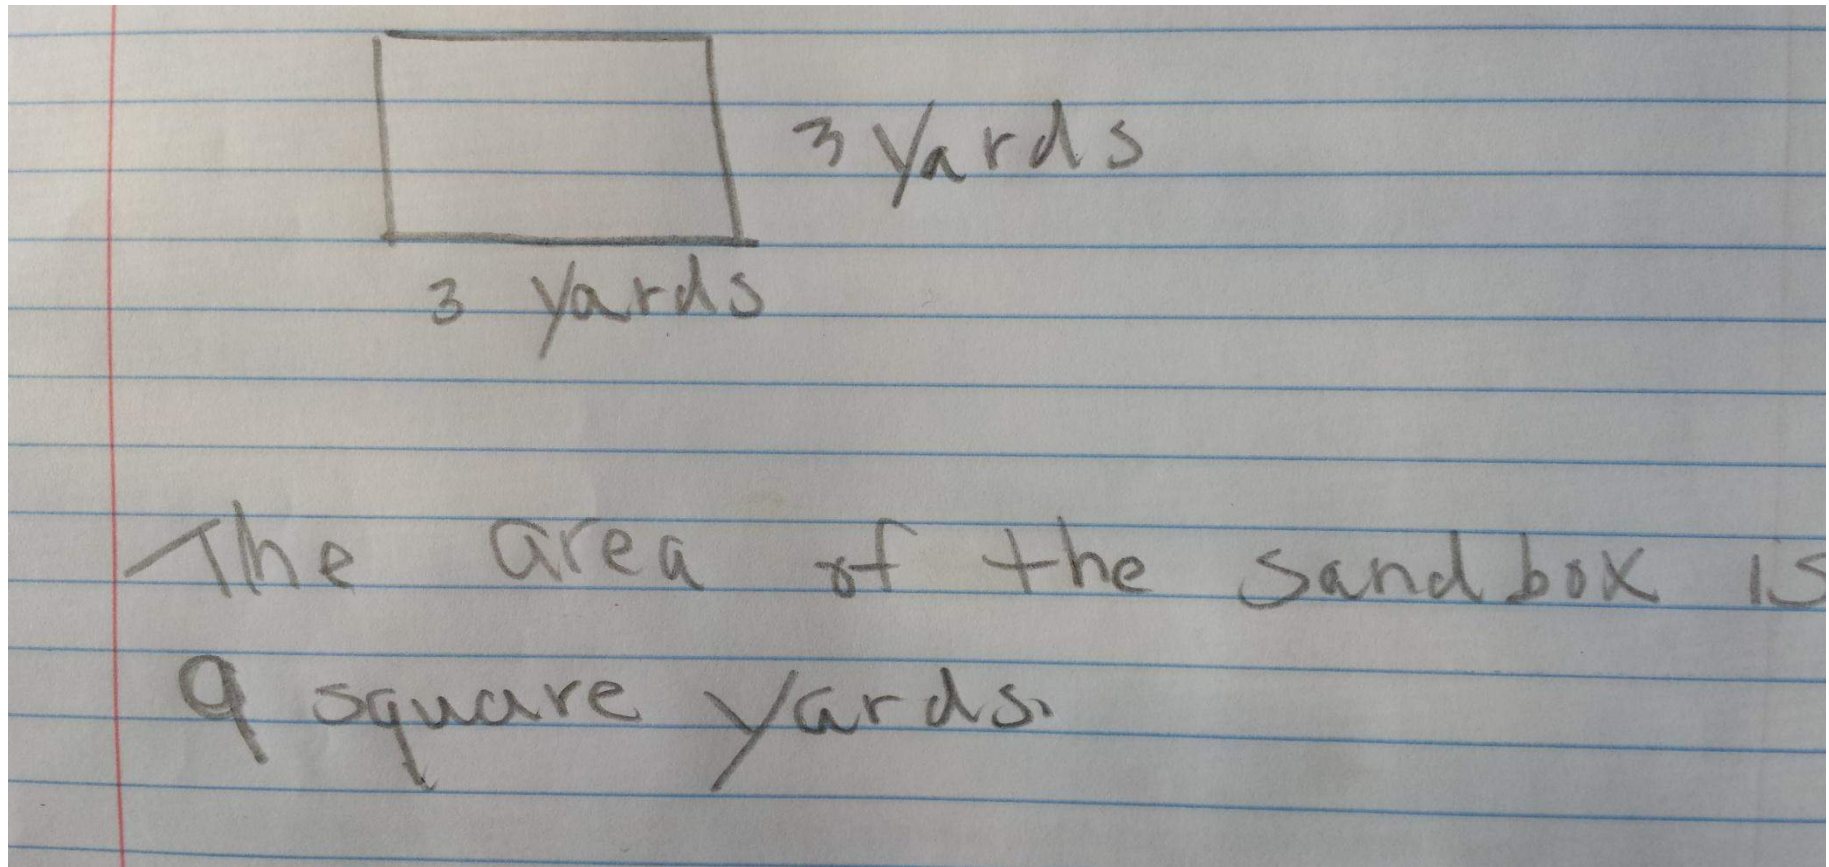 3 yards
3 yards
The area of the sandbox is
9 square yards.